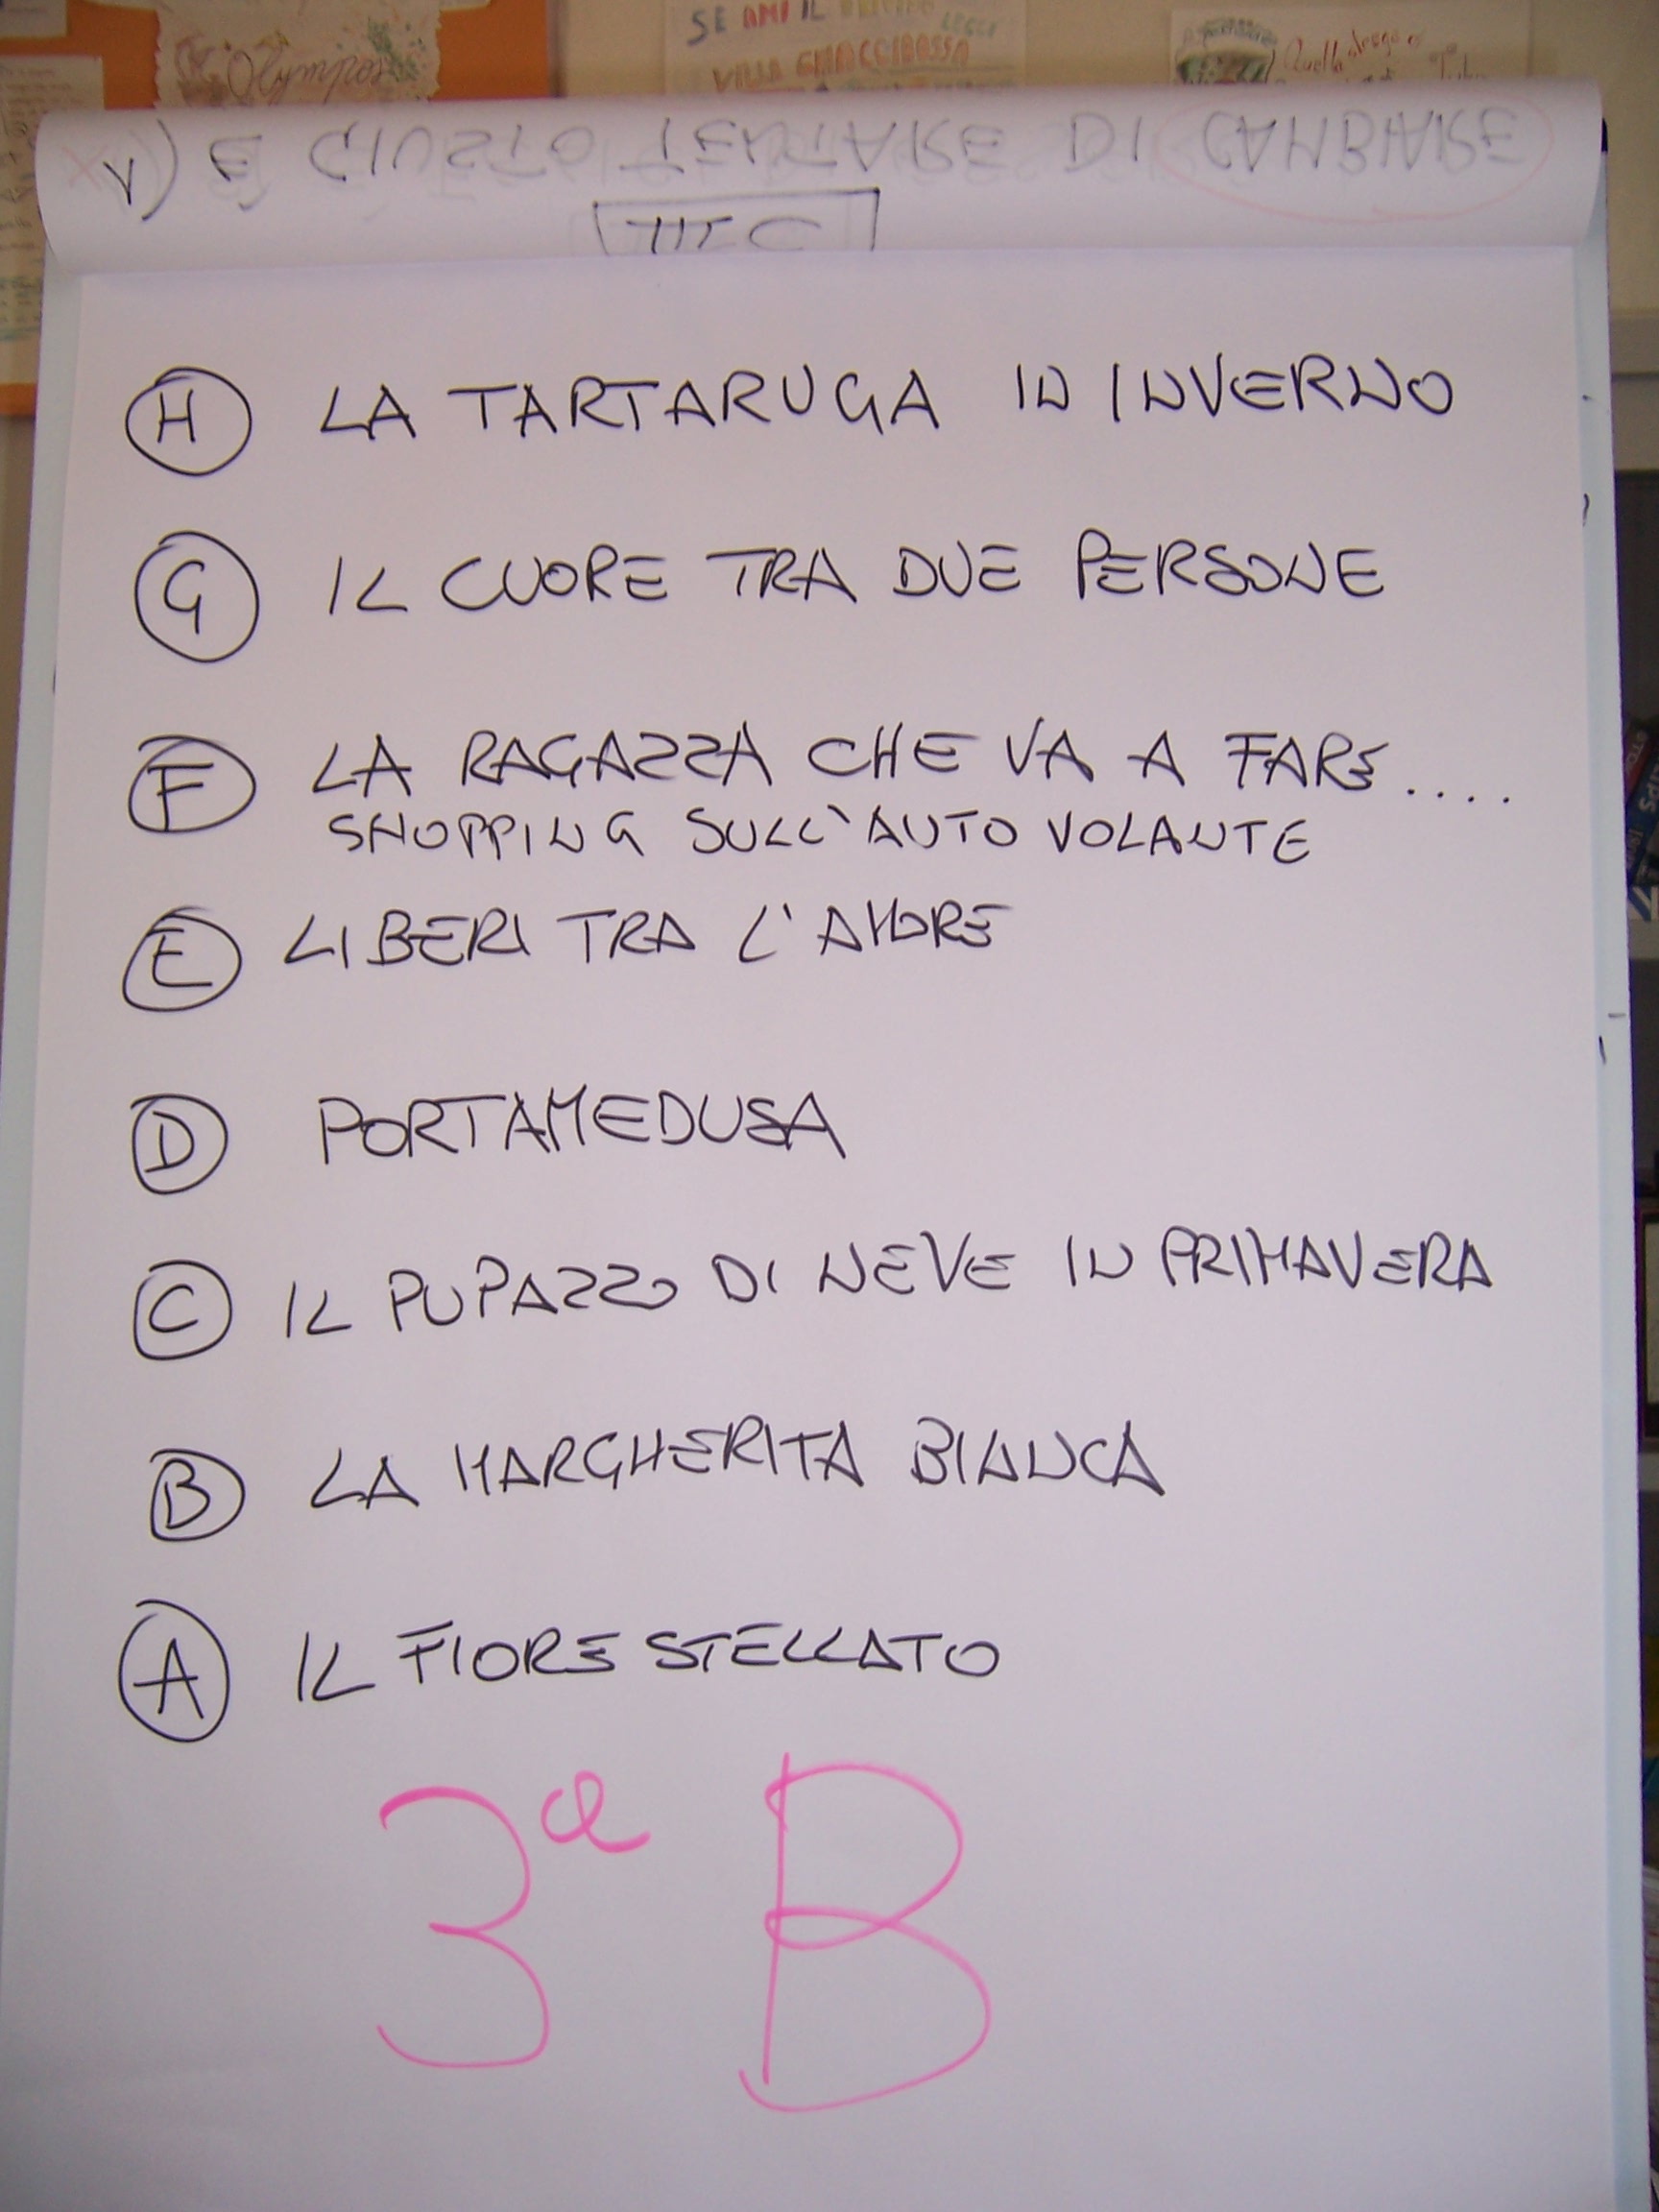 Olympos
SE AMI IL
LEGGI
VILLA GHIACCIBOSSA
Quella
È GIUSTO TENTARE DI CAMBIARE
III C
H LA TARTARUGA IN INVERNO
G IL CUORE TRA DUE PERSONE
F LA RAGAZZA CHE VA A FARE....
SHOPPING SULL'AUTO VOLANTE
E LIBERI TRA L'AMORE
D PORTAMEDUSA
C IL PUPAZZO DI NEVE IN PRIMAVERA
B LA MARGHERITA BIANCA
A IL FIORE STELLATO
3ª B